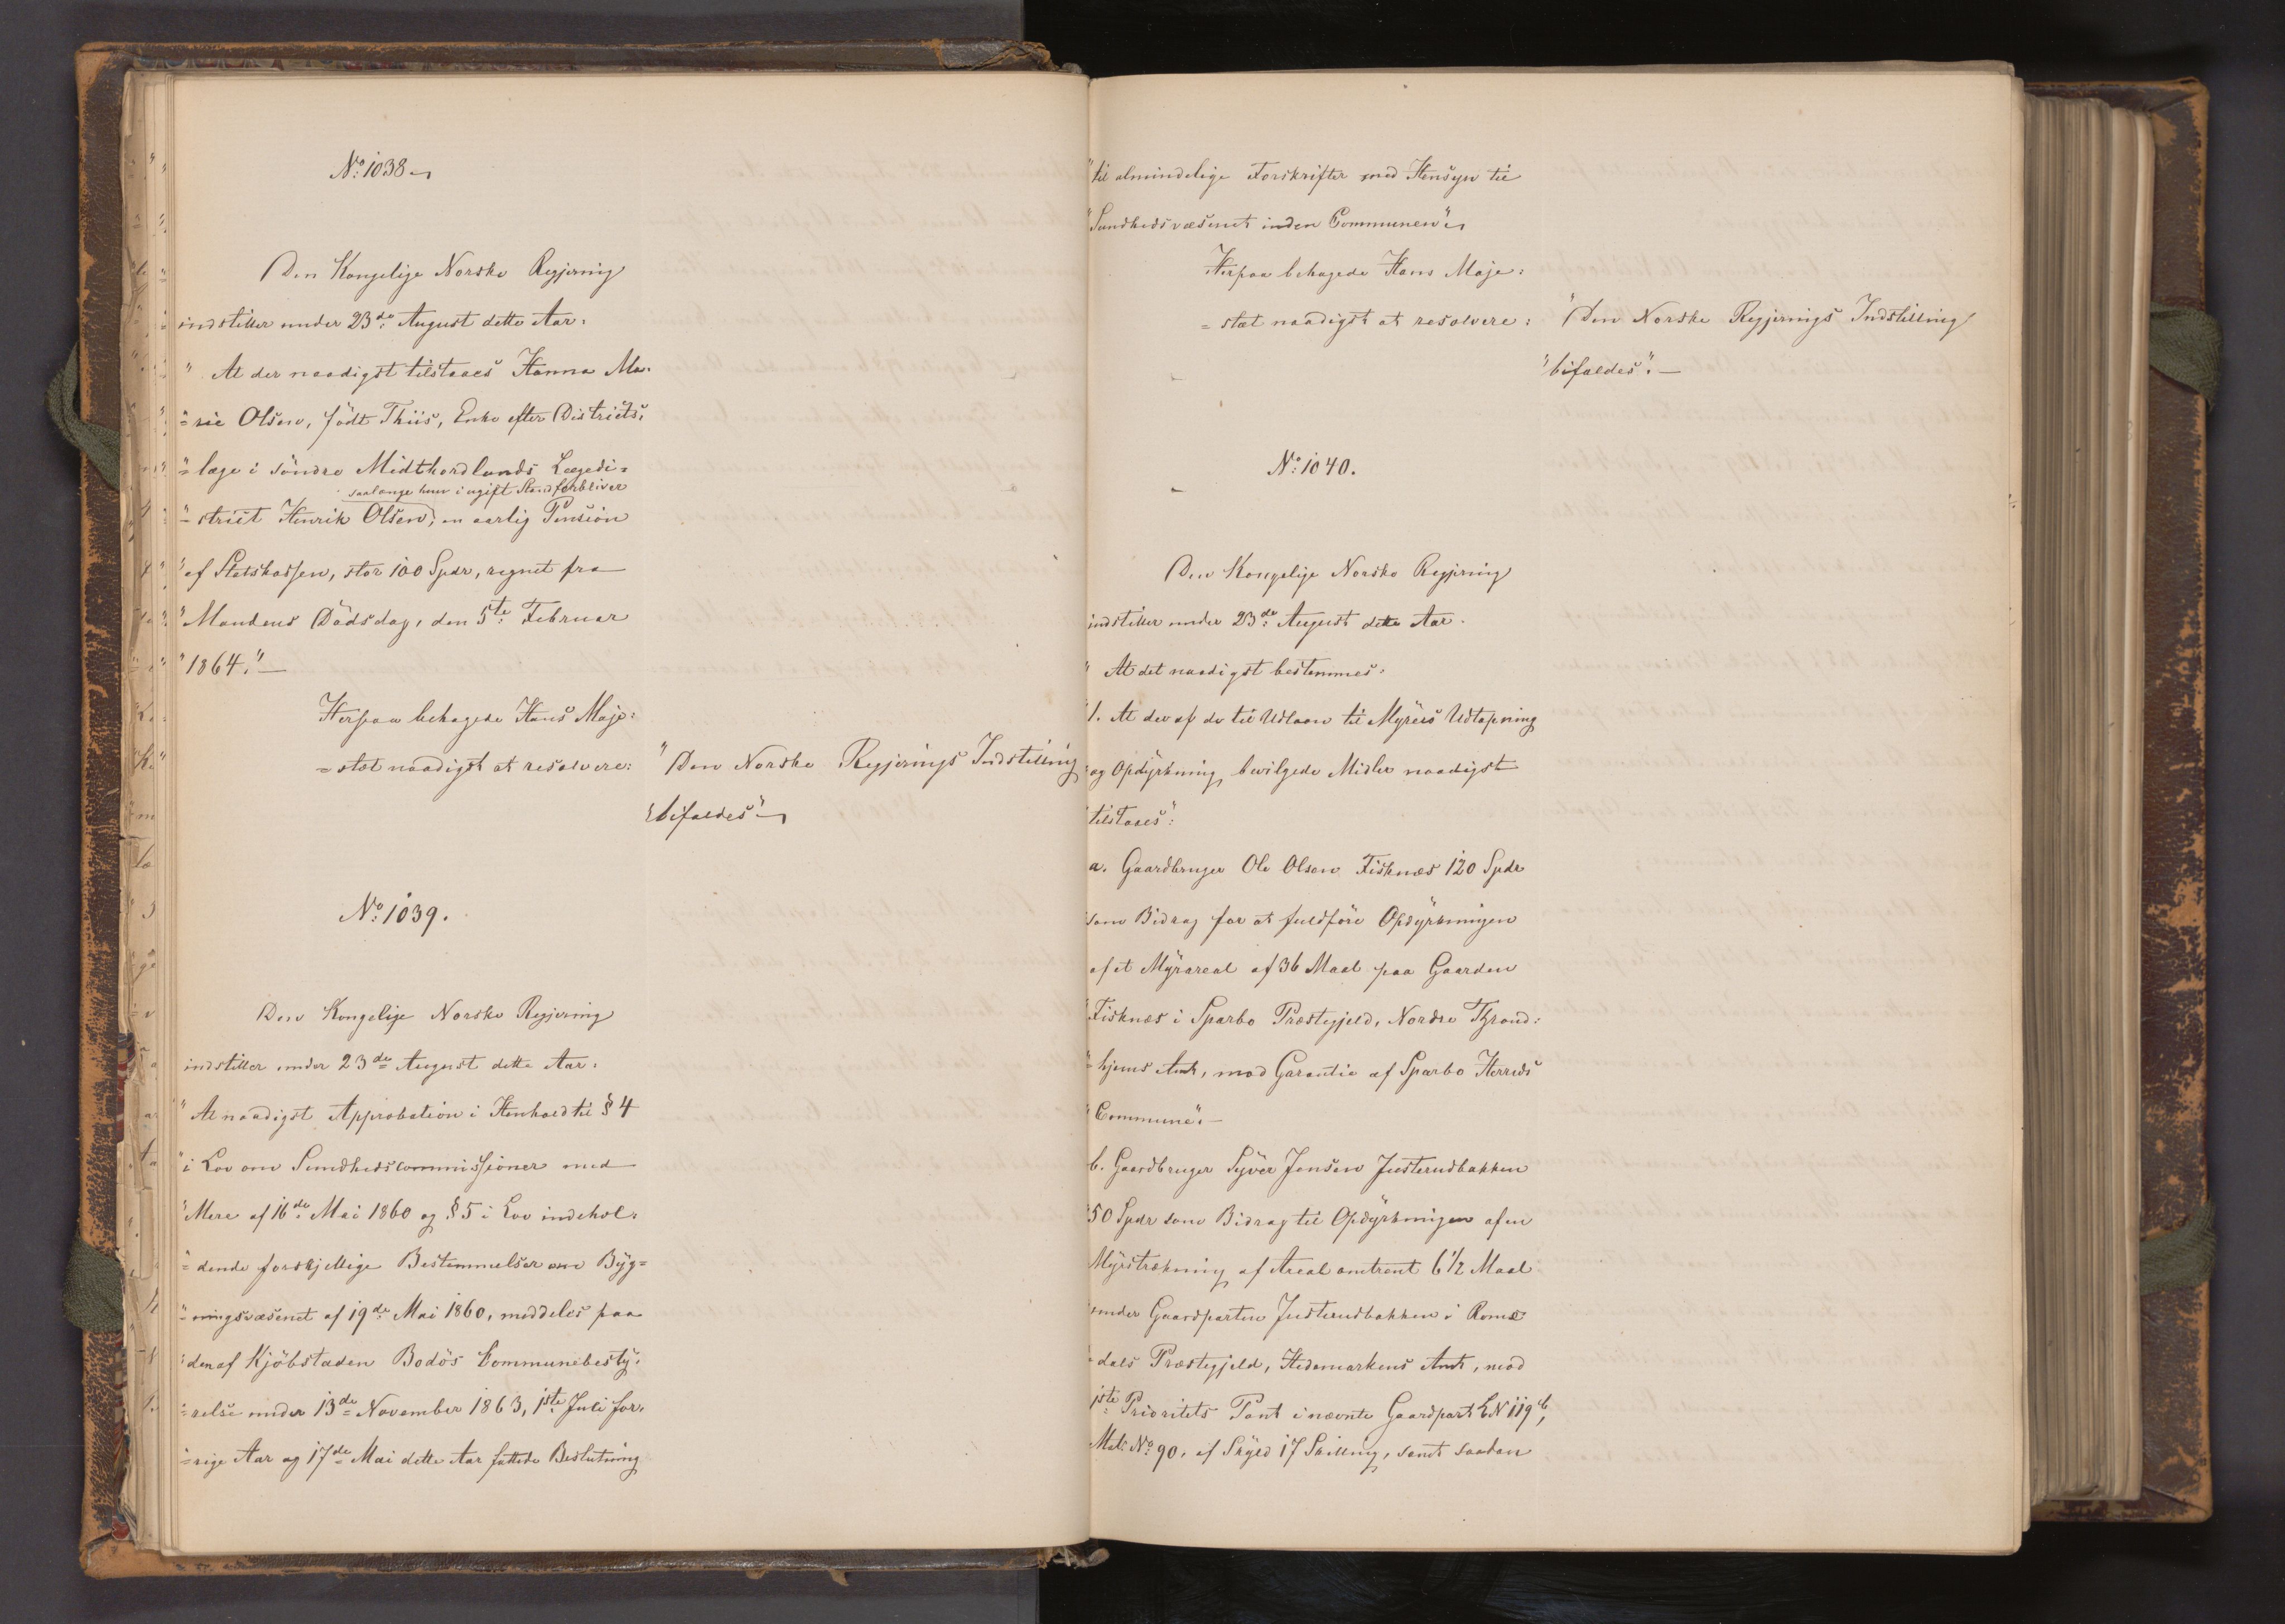 No: 1038
Den Kongelige Norske Regjering
indstiller under 23de August dette Aar:
" At der naadigst tilstaaes Hanna Ma-
"=rie Olsen, födt Thiis, Enke efter Districts:
"=læge i söndre Midthordlands Lægedi=
saalænge hun i ugift Stand forbliver
"=strict Henrik Olsen, en aarlig Pension
"af Statskassen, stor 100 Spdr, regnet fra
"Mandens Dödsdag, den 5te Februar
"1864."—
Herpaa behagede Hans Maje:
=stæt naadigst at resolvere:
"Den Norske Regjerings Indstilling
"bifaldes"
No: 1039.
Den Kongelige Norske Regjering
indstiller under 23de August dette Aar:
"At naadigst Approbation i Henhold til § 4
"i Lov om Sundhedscommissioner med
"Mere af 16de Mai 1860 og § 5 i Lov indehol:
"=dende forskjellige Bestemmelser om Byg=
"=ningsvæsenet af 19de Mai 1860, meddeles paa
"den af Kjöbstaden Bodös Communebesty:
"=relse under 13de November 1863, 1ste Juli for:
"=rige Aar og 17de Mai dette Aar fattede Beslutning
"til almindelige Forskrifter med Hensyn til
"Sundhedsvæsenet inden Communen"
Herpaa behagede Hans Maje:
=stæt naadigst at resolvere:
"Den Norske Regjerings Indstilling
"bifaldes".—
No: 1040.
Den Kongelige Norske Regjering
indstiller under 23de August dette Aar.
" At det naadigst bestemmes:
"1. At der af de til Udlaan til Myrers Udtapning
"og Opdyrkning bevilgede Midler naadigst
"tilstaaes":
a. Gaardbruger Ole Olsen Fisknæs 120 Spdr
"som Bidrag for at fuldföre Opdyrkningen
af et Myrareal af 36 Maal paa Gaarden
"Fisknæs i Sparbo Præstegjeld, Nordre Thrond:
"=hjems Amt, mod Garantie af Sparbo Herreds
"Commune".—
b. Gaardbruger Syver Jensen Justerudbakken
"50 Spdr som Bidrag til Opdyrkningen af en
Myrstrækning af Areal omtrent 6 1/2 Maal
"under Gaardparten Justerudbakken i Roms
"=dals Præstegjeld, Hedemarkens Amt, mod
1ste Prioritets Pant i nævnte Gaardpart LN 119b,
Mat: No 90, af Skyld 17 Skilling, samt saadan